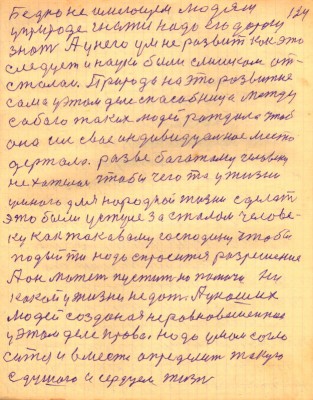 Безпо не имеющем людям
124
уприроде гнести надо его дорогу
знать А унего ум не развит как это
следует и науки были слишком от-
стала. Природа на это развитие
сама уэтом деле способница между
собого таких людей рождала чтоб
она им свое индивидуальное место
держала. разве богатому человеку
не хотелось чтобы чего то у жизни
умного для народной жизни сделать
это были уступе за столом челове-
ку как таковому господину чтобы
подойти надо спросится разрешение
А он может пустит но помочи ни
какой у жизни недот. А унаших
людей созданая неровновешенная
уэтом деле права. надо умом согло
сится и вместе определит такую
сдушого и сердцем жизнь